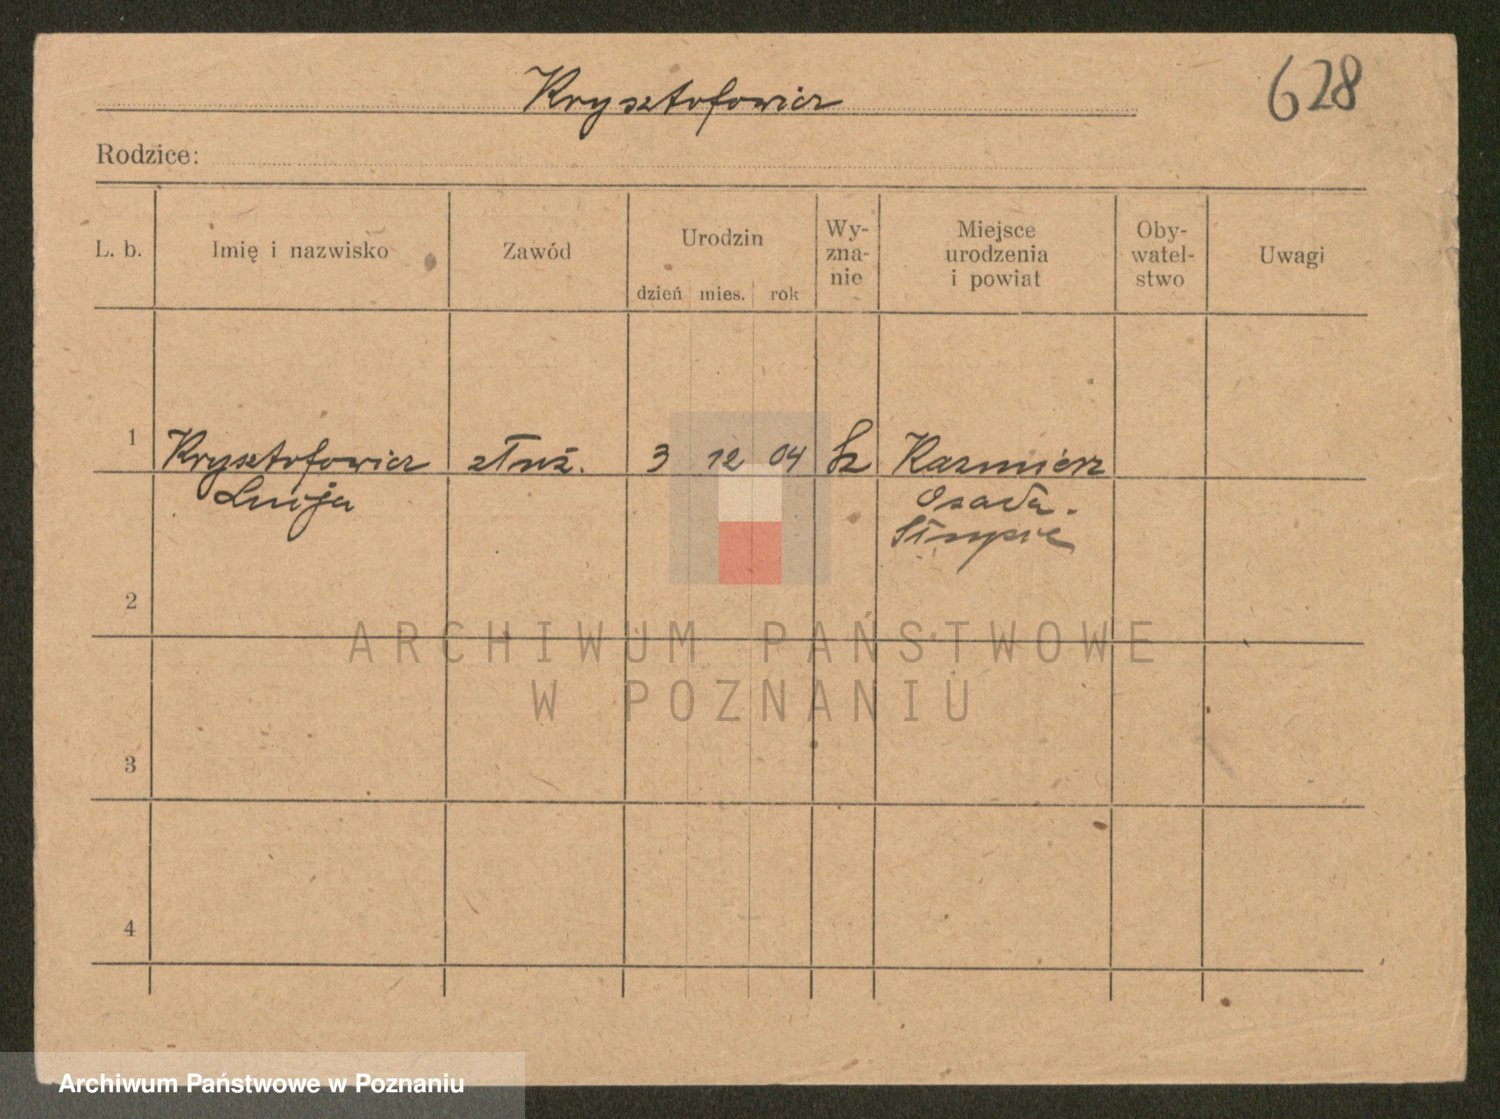 Krysztofowicz
628
Rodzice:
L. b.
Imię i nazwisko
Zawód
Urodzin
dzień mies. rok
Wy-
zna-
nie
Miejsce
urodzenia
i powiat
Oby-
watel-
stwo
Uwagi
1 Krysztofowicz 3 12 04 Kazimierz
Łucja Osada
2
3
4
ARCHIWUM PAŃSTWOWE
W POZNANIU
Archiwum Państwowe w Poznaniu